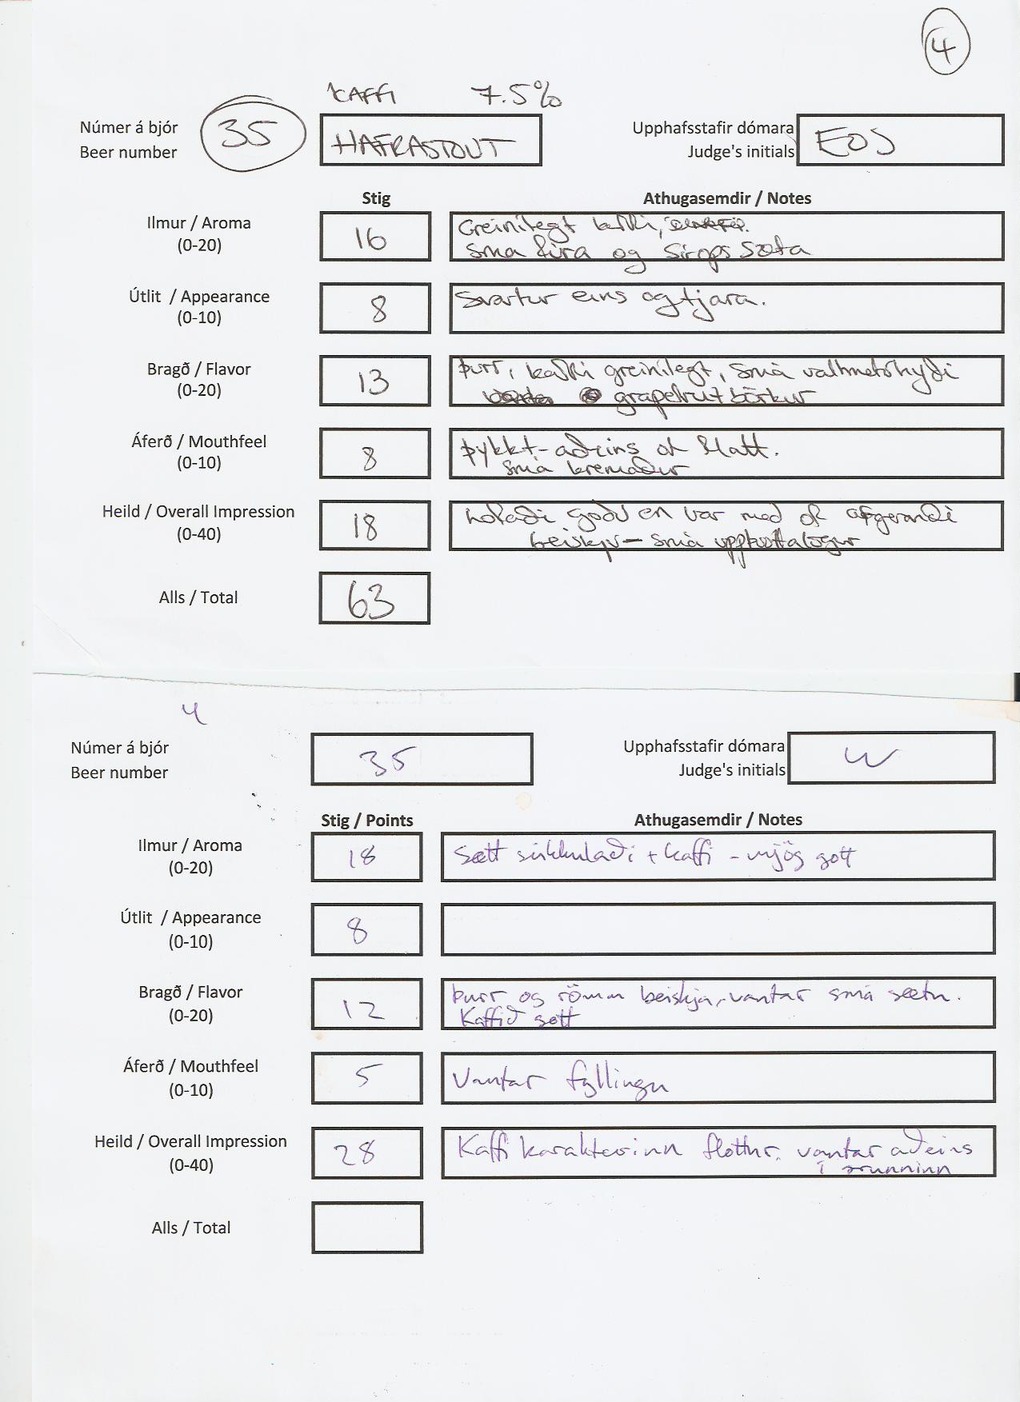 4
KAFFI 7.5%
Númer á bjór
Beer number
35
HAFRASTOUT
Upphafsstafir dómara
Judge's initials
EOJ
Stig
Athugasemdir / Notes
Ilmur / Aroma
(0-20)
16
Greinilegt kaffi,
smá fura og Siróps sæta
Útlit / Appearance
(0-10)
8
Svartur eins og tjara.
Bragð / Flavor
(0-20)
13
Þurr, kaffi greinilegt, smá valhnetuhýði
grapefrut börkur
Áferð / Mouthfeel
(0-10)
8
Þykkt - aðeins of flatt.
smá kremaður
Heild / Overall Impression
(0-40)
18
Lofaði góðu en var með of afgerandi
beiskju - smá
Alls / Total
63
4
Númer á bjór
Beer number
35
Upphafsstafir dómara
Judge's initials
W
Stig / Points
Athugasemdir / Notes
Ilmur / Aroma
(0-20)
18
Sætt súkkulaði + kaffi - mjög gott
Útlit / Appearance
(0-10)
8
Bragð / Flavor
(0-20)
12
Þurr og römm beiskja, vantar smá sætu.
Kaffið gott
Áferð / Mouthfeel
(0-10)
5
Vantar fyllingu
Heild / Overall Impression
(0-40)
28
Kaffi karakterinn flottur. vantar aðeins
í grunninn
Alls / Total